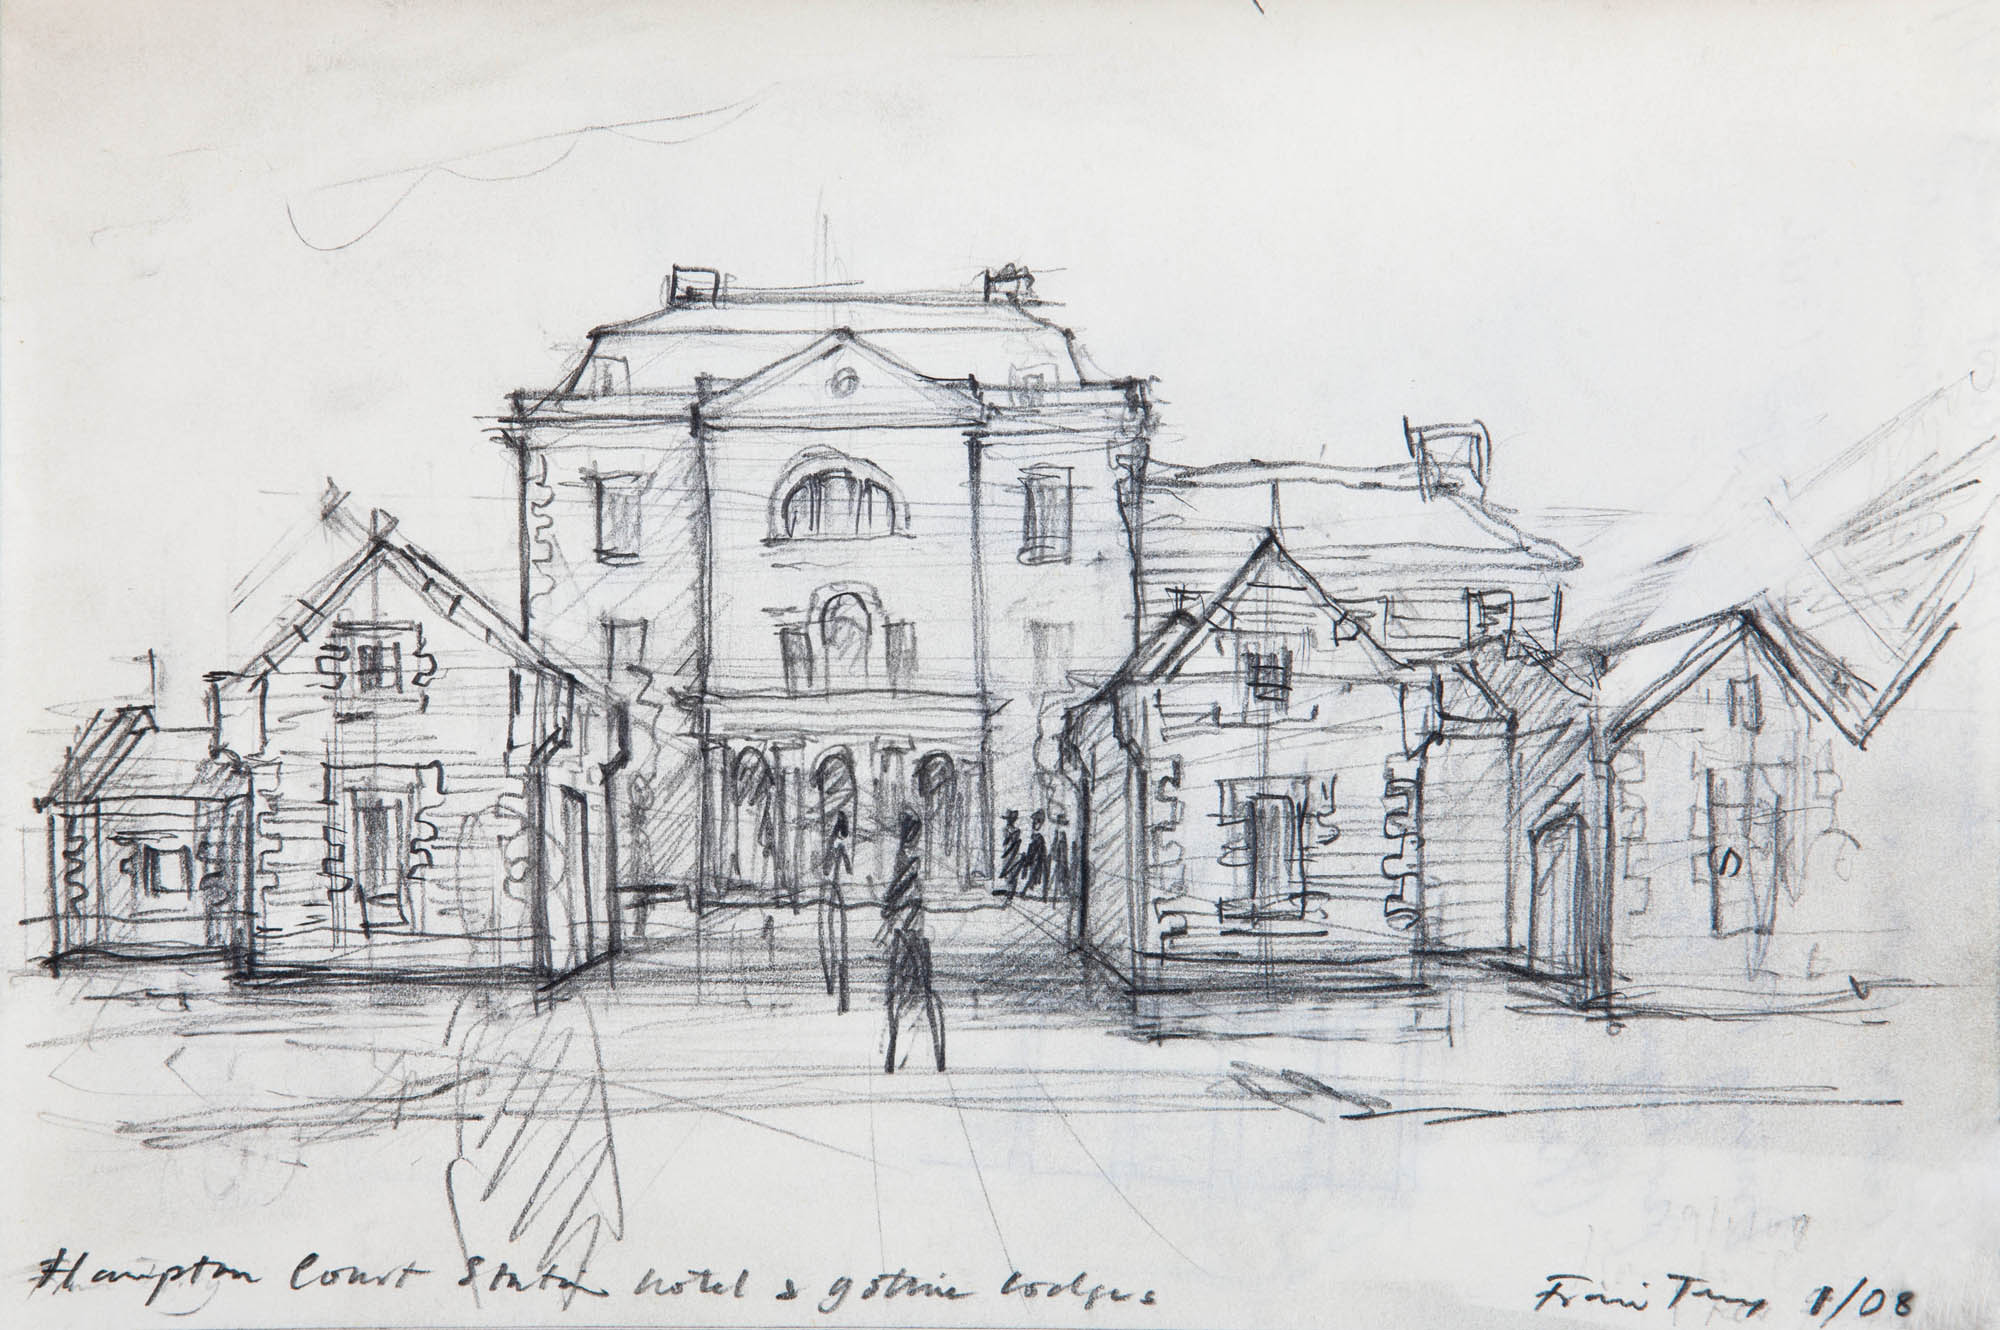 Hampton Court Station hotel & gothic lodges
Francis Terry 1/08